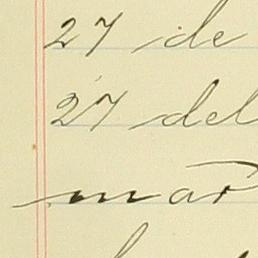 27 de
27 del
mar